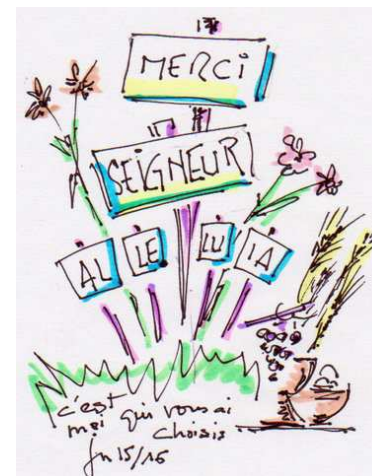 MERCi
SEiGNEUR
AL LE LU IA
c'est
moi qui vous ai
choisis
Jn 15/16